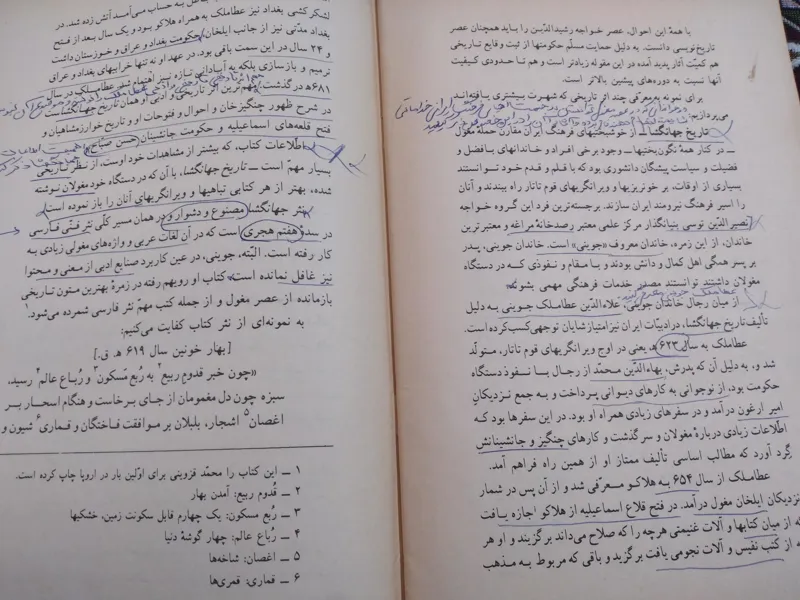 با همهٔ این احوال، عصر خواجه رشیدالدّین را باید همچنان عصر
تاریخ‌نویسی دانست. به دلیل حمایت مسلّم حکومتها از ثبت و قایع تاریخی
هم کمیّت آثار پدید آمده در این مقوله زیادتر است و هم تا حدودی کیفیت
آنها نسبت به دوره‌های پیشین بالاتر است.
برای نمونه به معرّفی چند اثر تاریخی که شهرت بیشتری یافته‌اند
می‌پردازیم:
تاریخ جهانگشا ـ از خوشبختیهای فرهنگ ایران مقارن حمله مغول
ـ در کنار همهٔ نگون‌بختیها ـ وجود برخی افراد و خاندانهای با فضل و
فضیلت و سیاست پیشگان دانشوری بود که با قلم و قدم خود توانستند
بسیاری از اوقات، بر خونریزیها و ویرانگریهای قوم تاتار راه ببندند و آنان
را اسیر فرهنگ نیرومند ایران سازند. برجسته‌ترین فرد این گروه خواجه
نصیر الدّین توسی بنیانگذار مرکز علمی معتبر رصدخانهٔ مراغه و معتبرترین
خاندان، از این زمره، خاندان معروف «جوینی» است. خاندان جوینی، پدر
بر پسر همگی اهل کمال و دانش بودند و با مقام و نفوذی که در دستگاه
مغولان داشتند توانستند مصدر خدمات فرهنگی مهمی بشوند.
از میان رجال خاندان جوینی، علاءالدّین عطاملک جوینی به دلیل
تألیف تاریخ جهانگشا، در ادبیّات ایران نیز امتیاز شایان توجهی کسب کرده است.
عطاملک به سال ۶۲۳ ه‍ یعنی در اوج ویرانگریهای قوم تاتار، متولّد
شد و، به دلیل آن که پدرش، بهاءالدّین محمّد از رجال با نفوذ دستگاه
حکومت بود، از نوجوانی به کارهای دیوانی پرداخت و به جمع نزدیکان
امیر ارغون درآمد و در سفرهای زیادی همراه او بود. در این سفرها بود که
اطّلاعات زیادی دربارهٔ مغولان و سرگذشت و کارهای چنگیز و جانشینانش
گرد آورد که مطالب اساسی تألیف ممتاز او از همین راه فراهم آمد.
عطاملک از سال ۶۵۴ به هلاکو معرّفی شد و از آن پس در شمار
نزدیکان ایلخان مغول درآمد. در فتح قلاع اسماعیلیه از هلاکو اجازه یافت
که از میان کتابها و آلات غنیمتی هرچه را که صلاح می‌داند برگزیند و او هر
چه از کتب نفیس و آلات نجومی یافت برگزید و باقی که مربوط به مذهب
لشکرکشی بغداد نیز عطاملک به همراه هلاکو بود و یک سال بعد از فتح
بغداد مدّتی نیز از جانب ایلخان، حکومت بغداد و عراق و خوزستان داشت
و ۲۴ سال در این سمت باقی بود. در عهد او نه تنها خرابیهای بغداد و عراق
ترمیم و بازسازی بلکه به آبادانی تازه نیز اهتمام شد. عطاملک در سال
۶۸۱ ه‍ درگذشت. مهم‌ترین اثر تاریخی و ادبی او همان تاریخ جهانگشاست
در شرح ظهور چنگیزخان و احوال و فتوحات او و تاریخ خوارزمشاهیان و
فتح قلعه‌های اسماعیلیه و حکومت جانشینان حسن صباح.
اطّلاعات کتاب، که بیشتر از مشاهدات خود اوست، از نظر تاریخی
بسیار مهمّ است ـ تاریخ جهانگشا، با آن که در دستگاه خود مغولان نوشته
شده، بهتر از هر کتابی تباهیها و ویرانگریهای آنان را باز نموده است.
نثر جهانگشا مصنوع و دشوار و در همان مسیر کلّی نثر فنّی فارسی
در سدهٔ هفتم هجری است که در آن لغات عربی و واژه‌های مغولی زیادی به
کار رفته است. البتّه، جوینی، در عین کاربرد صنایع ادبی از معنی و محتوا
نیز غافل نمانده است. کتاب او رویهم رفته در زمرهٔ بهترین متون تاریخی
بازمانده از عصر مغول و از جمله کتب مهمّ نثر فارسی شمرده می‌شود.۱
به نمونه‌ای از نثر کتاب کفایت می‌کنیم:
[بهار خونین سال ۶۱۹ ه‍. ق.]
«چون خبر قدوم ربیع۲ به رُبع مَسکون۳ و رُباع عالم۴ رسید،
سبزه چون دل مغمومان از جای برخاست و هنگام اسحار بر
اغصان۵ اشجار، بلبلان بر موافقت فاختگان و قماری۶ شیون و
۱ ـ این کتاب را محمّد قزوینی برای اوّلین بار در اروپا چاپ کرده است.
۲ ـ قُدوم ربیع: آمدن بهار
۳ ـ رُبع مسکون: یک چهارم قابل سکونت زمین، خشکیها
۴ ـ رُباع عالم: چهار گوشهٔ دنیا
۵ ـ اغصان: شاخه‌ها
۶ ـ قماری: قمری‌ها